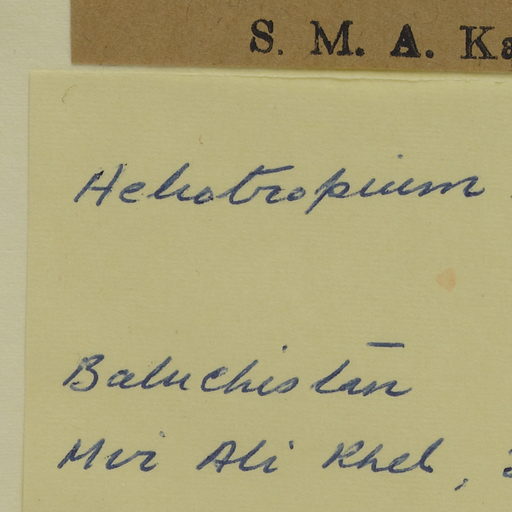 S. M. A. Ka
Heliotropium
Baluchistān
Mir Ali Khel,